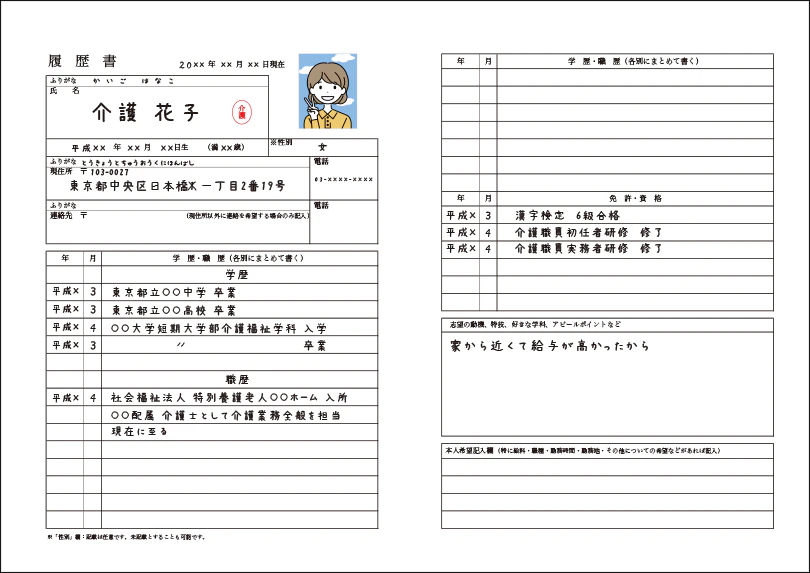 履 歴 書
20×× 年 ×× 月 ×× 日現在
ふりがな かいご はなこ
氏 名
介護 花子
介護
平成×× 年 ×× 月 ××日生 (満××歳)
※性別
女
ふりがな とうきょうとちゅうおうくにほんばし
現住所 〒103-0027
東京都中央区日本橋K一丁目2番19号
電話
03-××××-××××
ふりがな
連絡先 〒 (現住所以外に連絡を希望する場合のみ記入)
電話
年 月 学 歴・職 歴(各別にまとめて書く)
学歴
平成× 3 東京都立○○中学 卒業
平成× 3 東京都立○○高校 卒業
平成× 4 ○○大学短期大学部介護福祉学科 入学
平成× 3 〃 卒業
職歴
平成× 4 社会福祉法人 特別養護老人○○ホーム 入所
○○配属 介護士として介護業務全般を担当
現在に至る
※「性別」欄:記載は任意です。未記載とすることも可能です。
年 月 学 歴・職 歴(各別にまとめて書く)
年 月 免 許・資 格
平成× 3 漢字検定 6級合格
平成× 4 介護職員初任者研修 修了
平成× 4 介護職員実務者研修 修了
志望の動機、特技、好きな学科、アピールポイントなど
家から近くて給与が高かったから
本人希望記入欄(特に給料・職種・勤務時間・勤務地・その他についての希望などがあれば記入)